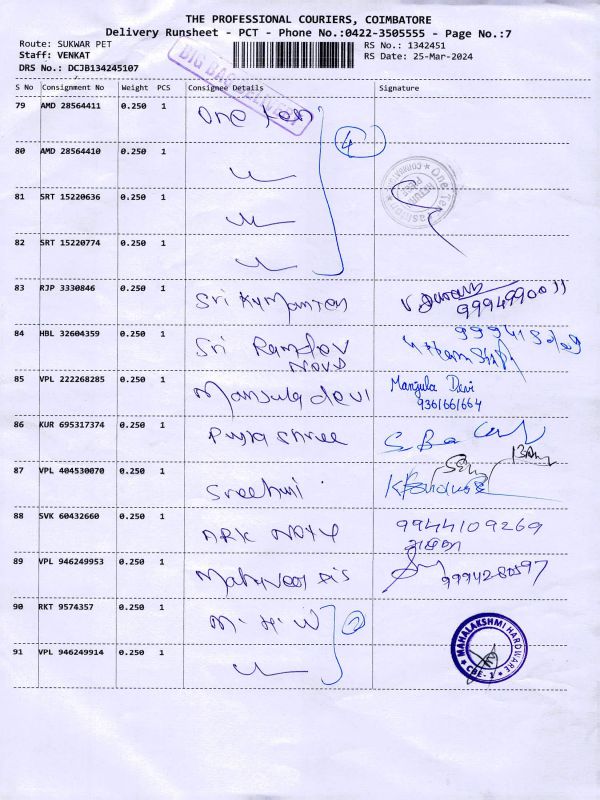 THE PROFESSIONAL COURIERS, COIMBATORE
Delivery Runsheet - PCT - Phone No.:0422-3505555 - Page No.:7
Route: SUKWAR PET
RS No.: 1342451
Staff: VENKAT
RS Date: 25-Mar-2024
DRS No.: DCJB134245107
BIG BAG DELIVERY
S No Consignment No Weight PCS Consignee Details Signature
79 AMD 28564411 0.250 1 One Ten
4
80 AMD 28564410 0.250 1
81 SRT 15220636 0.250 1
One Ten Fashion
82 SRT 15220774 0.250 1
83 RJP 3330846 0.250 1 Sri Kumaran
9994990011
84 HBL 32604359 0.250 1 Sri Ramdev
Nova
85 VPL 222268285 0.250 1 Manjula devi Manjula Devi
9361661664
86 KUR 695317374 0.250 1 Puja Shree
87 VPL 404530070 0.250 1 Sreehari
88 SVK 60432660 0.250 1 ARK 9944109269
89 VPL 946249953 0.250 1 Mahaveer
90 RKT 9574357 0.250 1 M. H. W 2
91 VPL 946249914 0.250 1
MAHALAKSHMI HARDWARE
CBE - 1